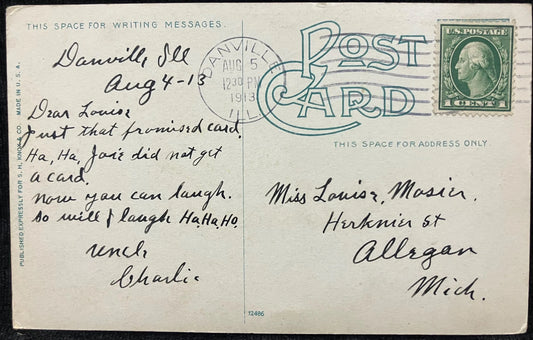 THIS SPACE FOR WRITING MESSAGES.
Danville, Ill
Aug 4-13
Dear Louise
Just that promised card.
Ha, Ha, Josie did not get
a card.
now you can laugh.
so will I laugh Ha, Ha, Ho.
Uncle
Charlie
PUBLISHED EXPRESSLY FOR S. H. KNOX & CO. MADE IN U.S.A.
DANVILLE
AUG 5
1230 PM
1913
ILL
POST
CARD
U.S. POSTAGE
1 CENT 1
THIS SPACE FOR ADDRESS ONLY.
Miss Louise, Mosier.
Herkmier St
Allegan
Mich.
12486